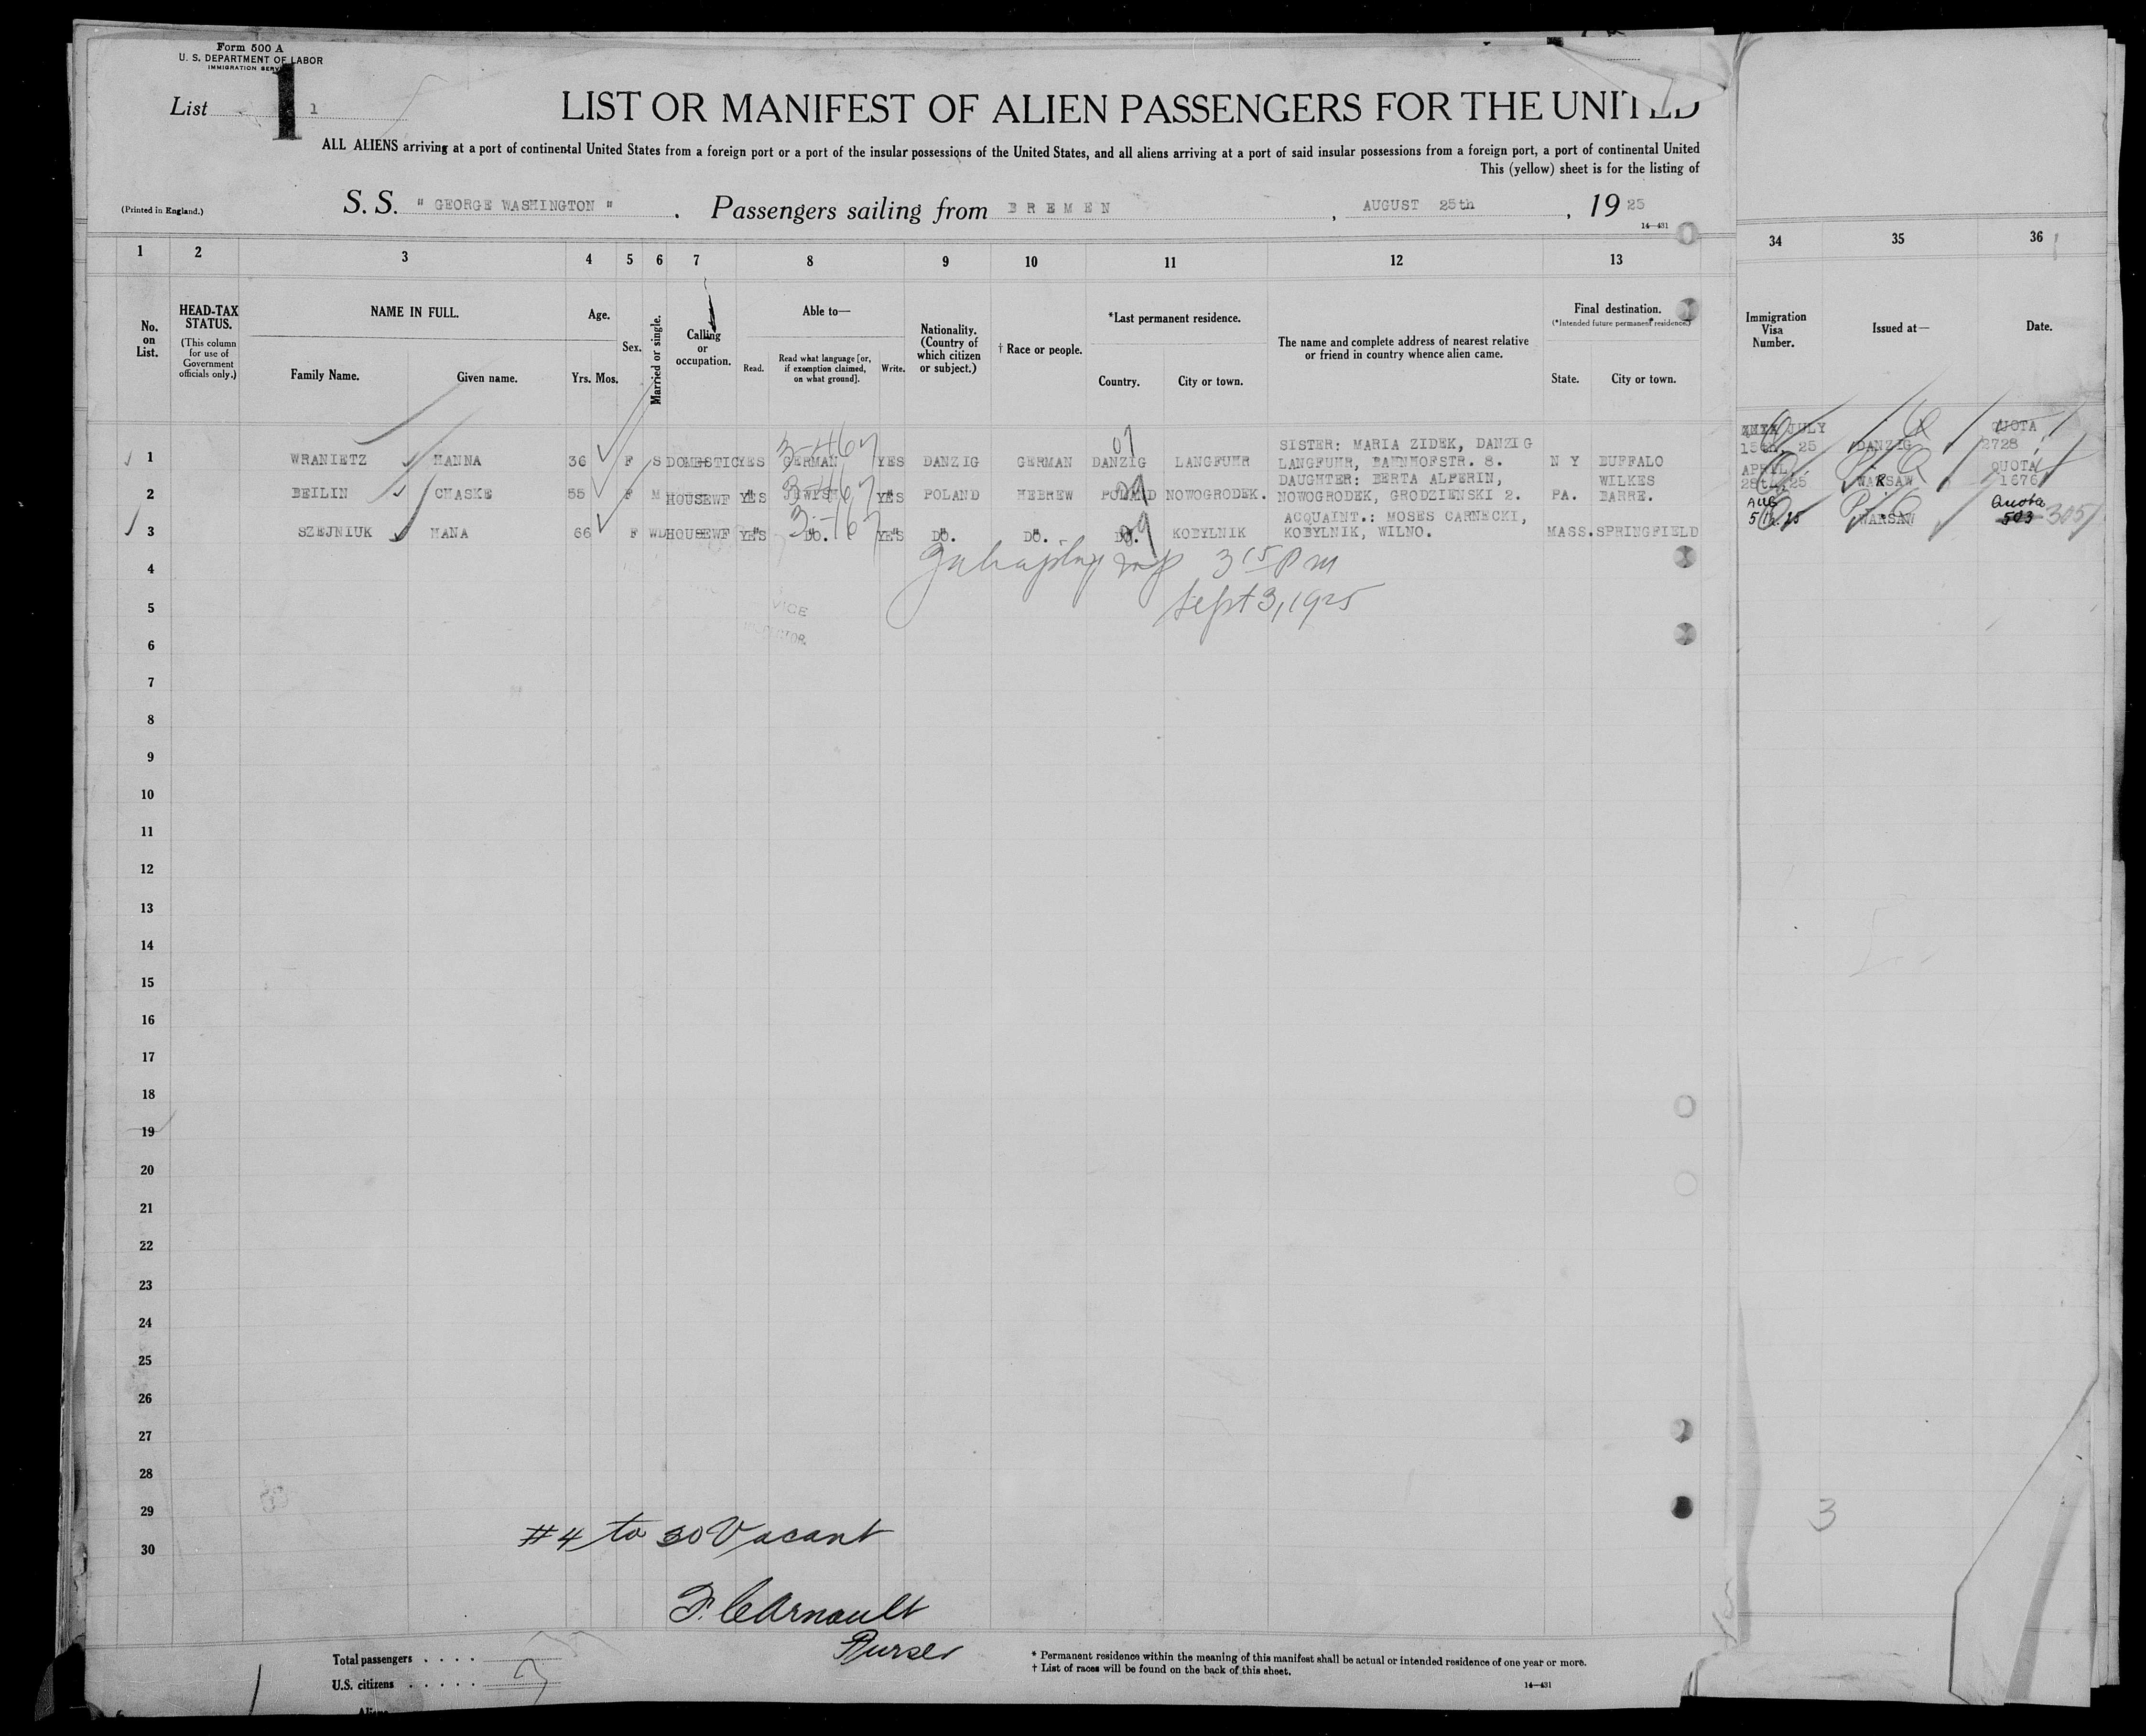 Form 500 A
U. S. DEPARTMENT OF LABOR
IMMIGRATION SERV
List 1 1
LIST OR MANIFEST OF ALIEN PASSENGERS FOR THE UNITED
ALL ALIENS arriving at a port of continental United States from a foreign port or a port of the insular possessions of the United States, and all aliens arriving at a port of said insular possessions from a foreign port, a port of continental United
This (yellow) sheet is for the listing of
(Printed in England.) S. S. " GEORGE WASHINGTON " . Passengers sailing from BREMEN , AUGUST 25th , 1925
14—431
1 2 3 4 5 6 7 8 9 10 11 12 13 34 35 36
No. on List.
HEAD-TAX STATUS.
(This column for use of Government officials only.)
NAME IN FULL.
Family Name. Given name.
Age.
Yrs. Mos.
Sex.
Married or single.
Calling or occupation.
Able to—
Read. Read what language [or, if exemption claimed, on what ground]. Write.
Nationality. (Country of which citizen or subject.)
† Race or people.
*Last permanent residence.
Country. City or town.
The name and complete address of nearest relative or friend in country whence alien came.
Final destination.
(*Intended future permanent residence.)
State. City or town.
Immigration Visa Number.
Issued at—
Date.
SISTER: MARIA ZIDEK, DANZIG JULY QUOTA
1 WRANIETZ HANNA 36 F S DOMESTIC YES GERMAN YES DANZIG GERMAN DANZIG LANGFUHR LANGFUHR, BAHNHOFSTR. 8. N Y BUFFALO 15th, 25 DANZIG 2728
DAUGHTER: BERTA ALPERIN, WILKES APRIL QUOTA
2 BEILIN CHASKE 55 F M HOUSEWF YES JEWISH YES POLAND HEBREW POLAND NOWOGRODEK. NOWOGRODEK, GRODZIENSKI 2. PA. BARRE. 28th, 25 WARSAW 1676
ACQUAINT.: MOSES CARNECKI, Aug Quota
3 SZEJNIUK MANA 66 F WD HOUSEWF YES DO. YES DO. DO. DO. KOBYLNIK KOBYLNIK, WILNO. MASS. SPRINGFIELD 5th. 25 WARSAW 503 305
4
3 15 PM
5
Sept 3, 1925
VICE
6
7
8
9
10
11
12
13
14
15
16
17
18
19
20
21
22
23
24
25
26
27
28
29
3
#4 to 30 Vacant
30
Purser
Total passengers . . . .
U.S. citizens . . . . .
* Permanent residence within the meaning of this manifest shall be actual or intended residence of one year or more.
† List of races will be found on the back of this sheet.
14—431